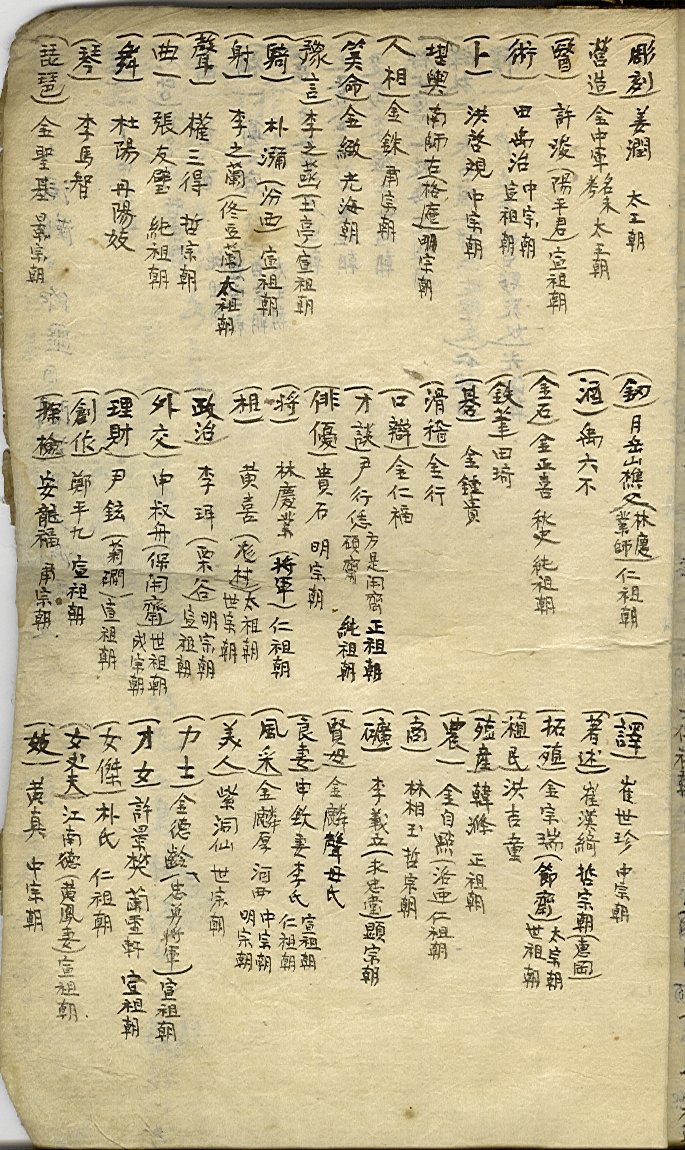 (彫刻) 姜潤 太王朝
(营造) 金中軍 名未考 太王朝
(醫) 許浚 (陽平君) 宣祖朝
(術) 田禹治 中宗朝 宣祖朝
(卜) 洪啓観 中宗朝
(堪輿) 南師古 格庵 明宗朝
人相 金銖 肅宗朝
(笑命) 金緻 光海朝
(豫言) 李之菡 土亭 宣祖朝
(騎) 朴瀰 (汾西) 宣祖朝
(射) 李之蘭 (佟豆蘭) 太祖朝
(聲) 權三得 哲宗朝
(曲) 張友璧 純祖朝
(舞) 杜陽 丹陽妓
(琴) 李馬智
(琵琶) 金聖基 景宗朝
(釼) 月岳山樵父 (林慶業師) 仁祖朝
(酒) 禹六不
(金石) 金正喜 秋史 純祖朝
(鉄筆) 田琦
(碁) 金鍾貴
(滑稽) 金行
(口辯) 金仁福
(才談) 尹行恁 方是閑齋 碩齋 正祖朝 純祖朝
(俳優) 貴石 明宗朝
(将) 林慶業 (将軍) 仁祖朝
(相) 黄喜 (厖村) 太祖朝 世宗朝
(政治) 李珥 (栗谷) 明宗朝 宣祖朝
(外交) 申叔舟 (保閑齋) 世祖朝 成宗朝
(理財) 尹鉉 (菊磵) 宣祖朝
(創作) 鄭平九 宣祖朝
(探檢) 安龍福 肅宗朝
(譯) 崔世珍 中宗朝
(著述) 崔漢綺 哲宗朝 (惠岡)
(拓殖) 金宗瑞 (節齋) 太宗朝 世祖朝
(植民) 洪吉童
(殖産) 韓滌 正祖朝
(農) 金自點 (洛西) 仁祖朝
(商) 林相玉 哲宗朝
(礦) 李義立 (求忠堂) 顕宗朝
(賢母) 金麟聲母氏
(良妻) 申欽妻李氏 宣祖朝 仁祖朝
(風采) 金麟厚 河西 中宗朝 明宗朝
(美人) 紫洞仙 世宗朝
(力士) 金德齡 (忠勇将軍) 宣祖朝
(才女) 許景樊 蘭雪軒 宣祖朝
(女傑) 朴氏 仁祖朝
(女丈夫) 江南德 (黄鳳妻) 宣祖朝
(妓) 黄真 中宗朝